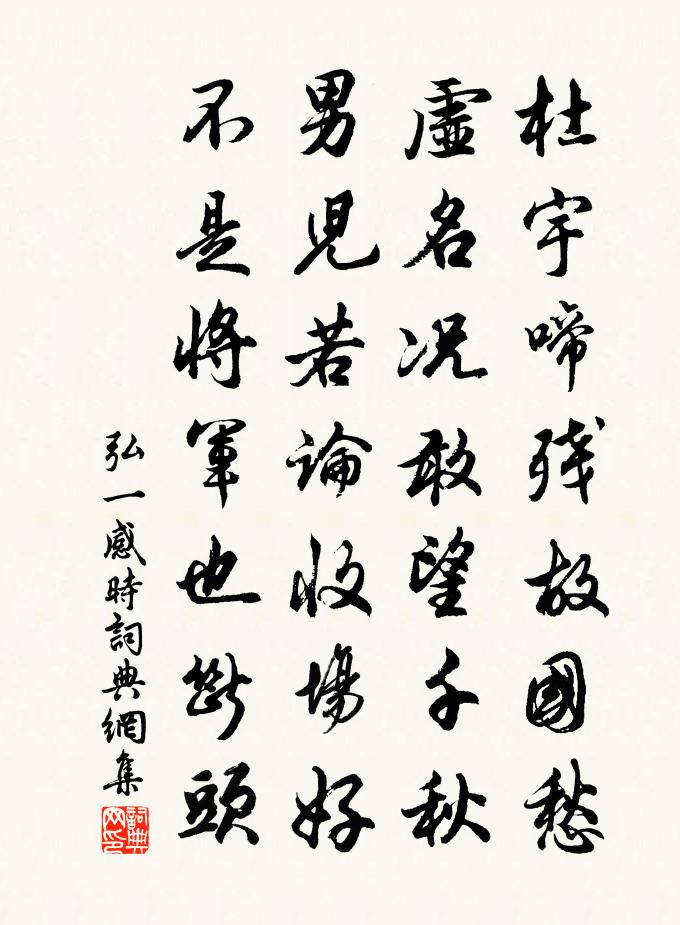 杜宇啼殘故國愁
虛名況敢望千秋
男兒若論收場好
不是將軍也斷頭
弘一感時詞典網集
詞典网印